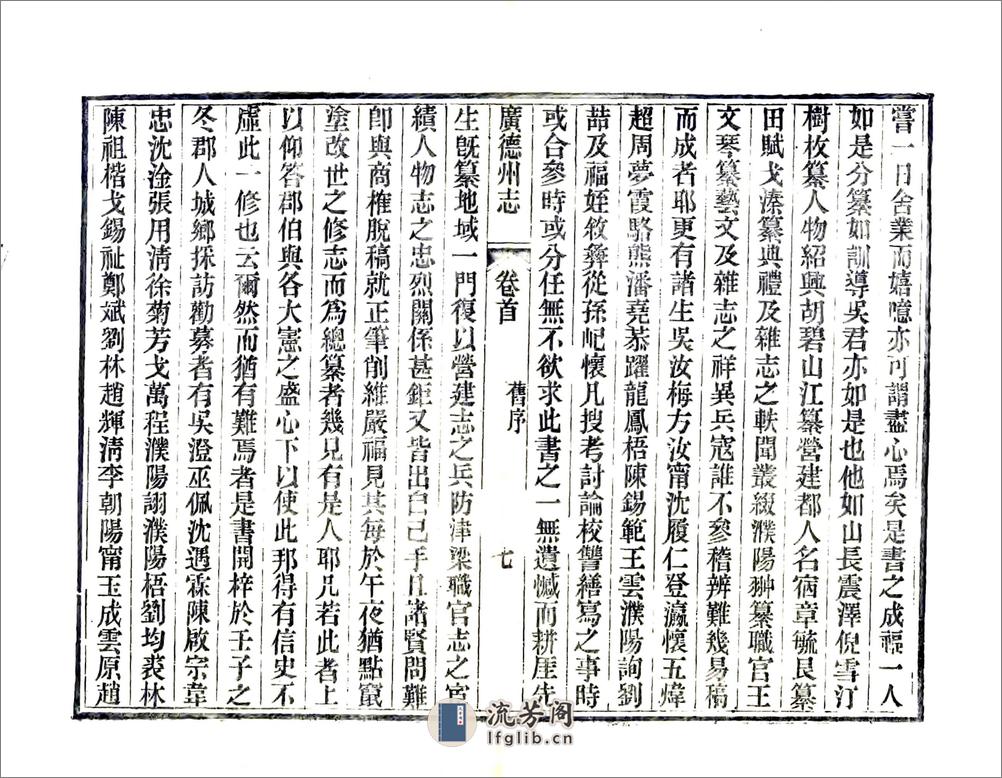 嘗一日舍業而嬉噫亦可謂盡心焉矣是書之成福一人
如是分纂如訓導吳君亦如是也他如山長震澤倪雪汀
樹枚纂人物紹興胡碧山江纂營建都人名宿章毓艮纂
田賦戈溱纂典禮及雜志之軼聞叢綴濮陽翀纂職官王
文琴纂藝文及雜志之祥異兵寇誰不參稽辨難幾易稿
而成者耶更有諸生吳汝梅方汝甯沈履仁登瀛懷五煒
超周夢霞駱熊潘堯菾躍龍鳳梧陳錫範王雲濮陽詢劉
喆及福姪敘彝從孫屺懷凡搜考討論校讐繕寫之事時
或合參時或分任無不欲求此書之一無遺憾而耕厓先
廣德州志
卷首
舊序
七
生旣纂地域一門復以營建志之兵防津梁職官志之宦
績人物志之忠烈關係甚鉅又皆出自己手且諸賢問難
卽與商榷脫稿就正筆削維嚴福見其每於午夜猶點竄
塗改世之修志而爲總纂者幾見有是人耶凡若此者上
以仰答郡伯與各大憲之盛心下以使此邦得有信史不
虛此一修也云爾然而猶有難焉者是書開梓於壬子之
冬郡人城鄉採訪勸募者有吳澄巫佩沈遇霖陳啟宗韋
忠沈淦張用淸徐菊芳戈萬程濮陽詡濮陽梧劉均裘林
陳祖楷戈錫祉鄭斌劉林趙輝淸李朝陽甯玉成雲原趙
流芳阁
lfglib.cn